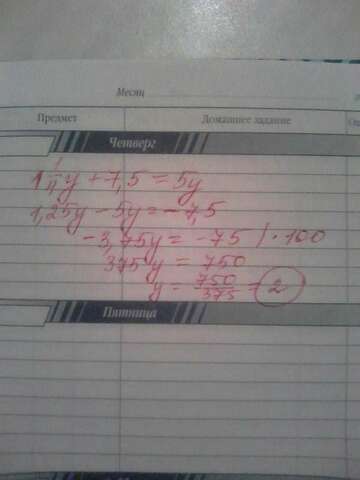 Месяц
Предмет Домашнее задание
Четверг
1 1/4 y + 7,5 = 5y
1,25y - 5y = -7,5
-3,75y = -75 | · 100
375y = 750
y = 750/375 = 2
Пятница